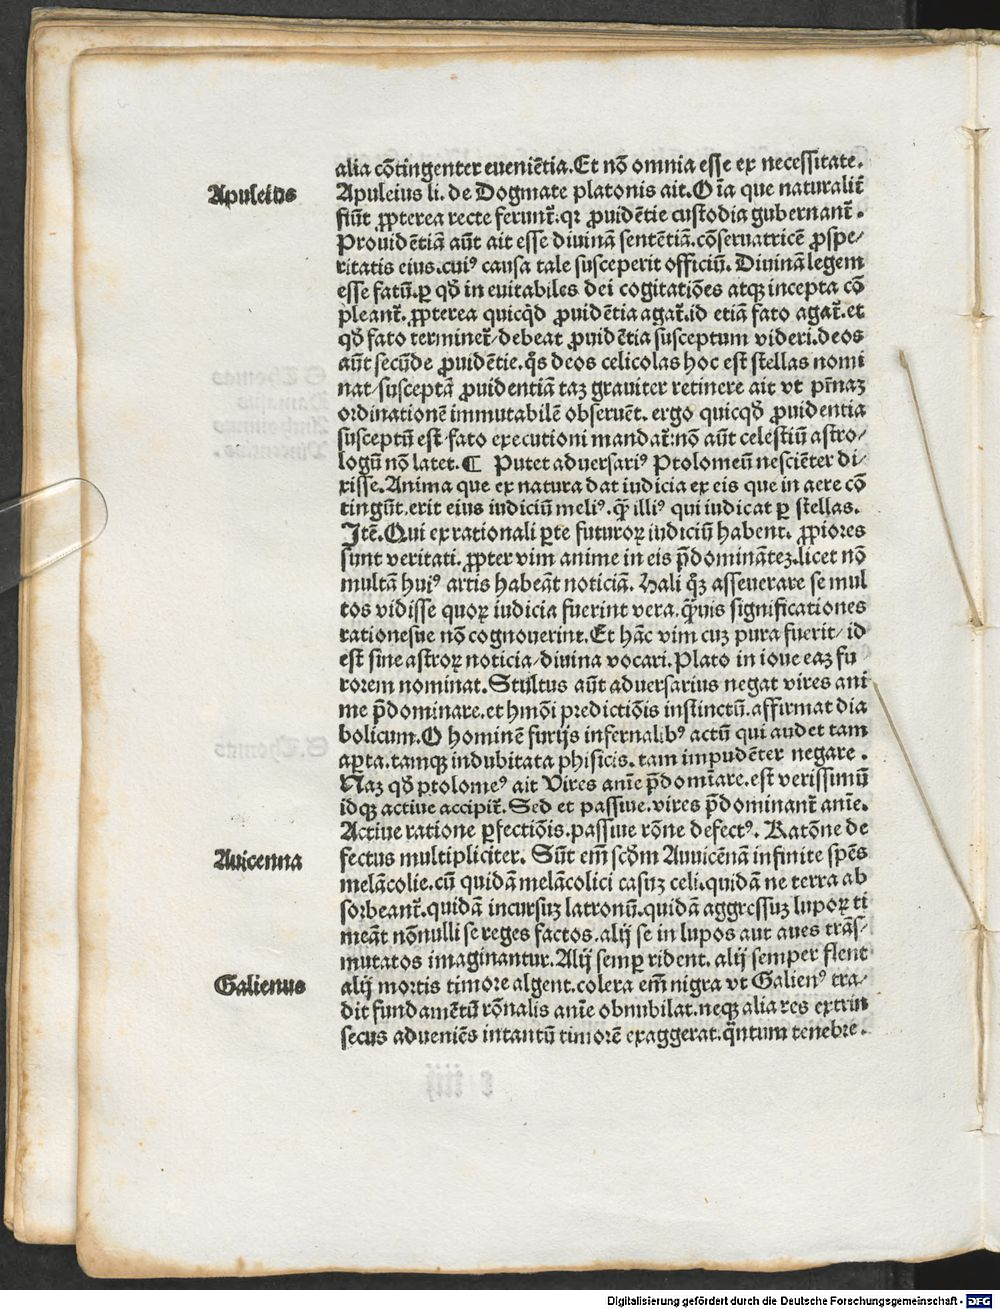 alia cõtingenter eueniẽtia. Et nõ omnia esse ex necessitate.
Apuleius
Apuleius li. de Dogmate platonis ait. Oĩa que naturalit̃
fiũt ꝓpterea recte ferunt̃. qꝛ ꝓuidẽtie custodia gubernant̃.
Prouidẽtiã aũt ait esse diuinã sentẽtiã. cõseruatricẽ ꝓspe/
ritatis eius. cuiꝰ causa tale susceperit officiũ. Diuinã legem
esse fatũ. ꝑ qð in euitabiles dei cogitatiões atqꝫ incepta cõ
pleant̃. ꝓpterea quicqð ꝓuidẽtia agat̃. id etiã fato agat̃. et
qð fato terminet̃/ debeat ꝓuidẽtia susceptum videri. deos
aũt secũde ꝓuidẽtie. q̃s deos celicolas hoc est stellas nomi
nat/ susceptã ꝓuidentiã taꝫ grauiter retinere ait vt pr̃naꝫ
ordinationẽ immutabilẽ obseruẽt. ergo quicqð ꝓuidentia
susceptũ est/ fato executioni mandat̃: nõ aũt celestiũ astro/
logũ nõ latet. ¶ Putet aduersariꝰ Ptolomeũ nesciẽter di/
xisse. Anima que ex natura dat iudicia ex eis que in aere cõ
tingũt. erit eius iudiciũ meliꝰ. q̃ illiꝰ qui iudicat ꝑ stellas.
Itẽ. Qui ex rationali ꝑte futuroꝝ iudiciũ habent. ꝓpiores
sunt veritati. ꝓpter vim anime in eis p̃dominãteꝫ. licet nõ
multã huiꝰ artis habeãt noticiã. Hali qꝫ asseuerare se mul
tos vidisse quoꝝ iudicia fuerint vera. q̃uis significationes
rationesue nõ cognouerint. Et hãc vim cuꝫ pura fuerit/ id
est sine astroꝝ noticia/ diuina vocari. Plato in ioue eaꝫ fu
rorem nominat. Stultus aũt aduersarius negat vires ani
me p̃dominare. et hmõi predictiõis instinctũ. affirmat dia
bolicum. O hominẽ furijs infernalibꝰ actũ qui audet tam
aꝑta. tamqꝫ indubitata phisicis. tam impudẽter negare.
Naꝫ qð ptolomeꝰ ait Vires anĩe p̃domĩare. est verissimũ
idqꝫ actiue accipit̃. Sed et passiue. vires p̃dominant̃ anĩe.
Actiue ratione ꝑfectiõis. passiue rõne defectꝰ. Ratõne de
Auicenna
fectus multipliciter. Sũt em̃ scðm Auuicẽnã infinite spẽs
melãcolie. cũ quidã melãcolici casuꝫ celi. quidã ne terra ab
sorbeant̃. quidã incursuꝫ latronũ. quidã aggressuꝫ lupoꝝ ti
meãt nõnulli se reges factos. alij se in lupos aut aues trãs/
mutatos imaginantur. Alij semꝑ rident. alij semper flent
Galienus
alij mortis timore algent. colera em̃ nigra vt Galienꝰ tra/
dit fundamẽtũ rõnalis anĩe obnubilat. neqꝫ alia res extrin
secus adueniẽs intantũ timorẽ exaggerat. q̃ntum tenebre.
Digitalisierung gefördert durch die Deutsche Forschungsgemeinschaft - DFG